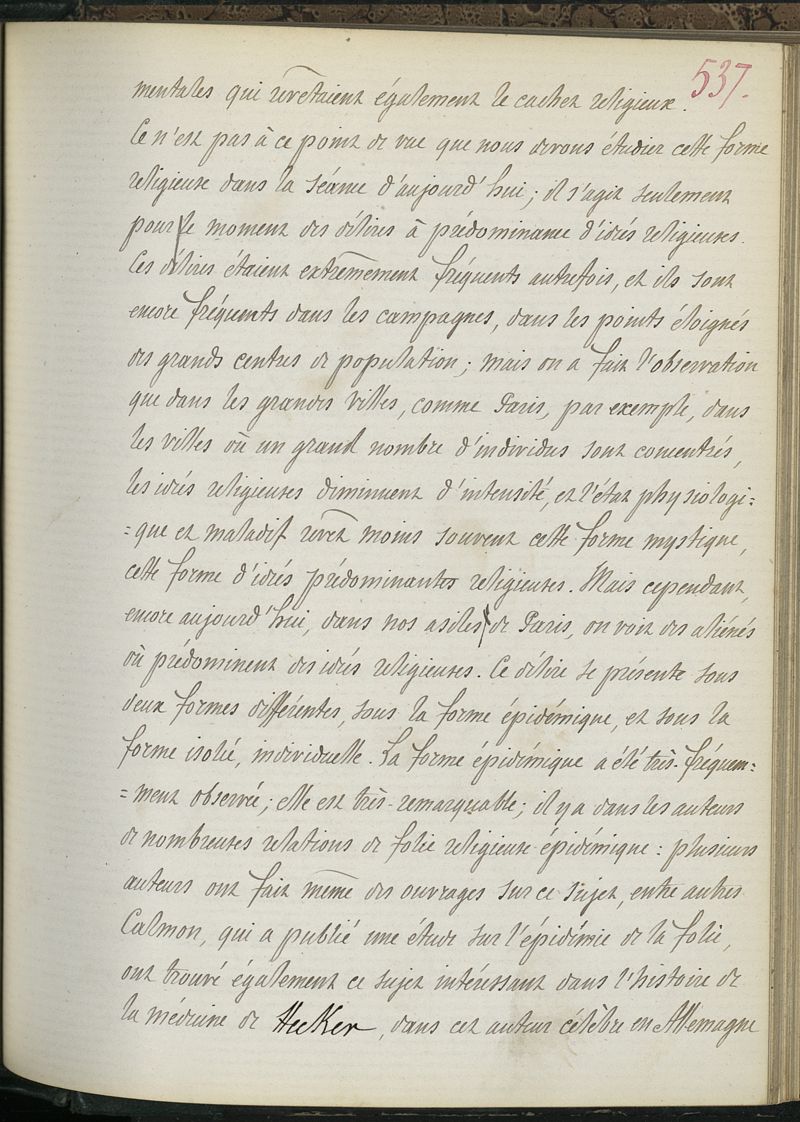 537.
mentales qui revêtaient également le cachet religieux.
Ce n'est pas à ce point de vue que nous devons étudier cette forme
religieuse dans la séance d'aujourd'hui; il s'agit seulement
pour le moment des délires à prédominance d'idées religieuses.
Ces délires étaient extrêmement fréquents autrefois, et ils sont
encore fréquents dans les campagnes, dans les points éloignés
des grands centres de population; mais on a fait l'observation
que dans les grandes villes, comme Paris, par exemple, dans
les villes où un grand nombre d'individus sont concentrés,
les idées religieuses diminuent d'intensité, et l'état physiologi=
=que et maladif revêt moins souvent cette forme mystique,
cette forme d'idées prédominantes religieuses. Mais cependant,
encore aujourd'hui, dans nos asiles de Paris, on voit des aliénés
où prédominent des idées religieuses. Ce délire se présente sous
deux formes différentes, sous la forme épidémique, et sous la
forme isolée, individuelle. La forme épidémique a été très-fréquem=
=ment observée; elle est très-remarquable; il y a dans les auteurs
de nombreuses relations de folie religieuse épidémique: plusieurs
auteurs ont fait même des ouvrages sur ce sujet, entre autres
Calmon, qui a publié une étude sur l'épidémie de la folie,
ont trouvé également ce sujet intéressant dans l'histoire de
la médecine de Hecker, dans cet auteur célèbre en Allemagne